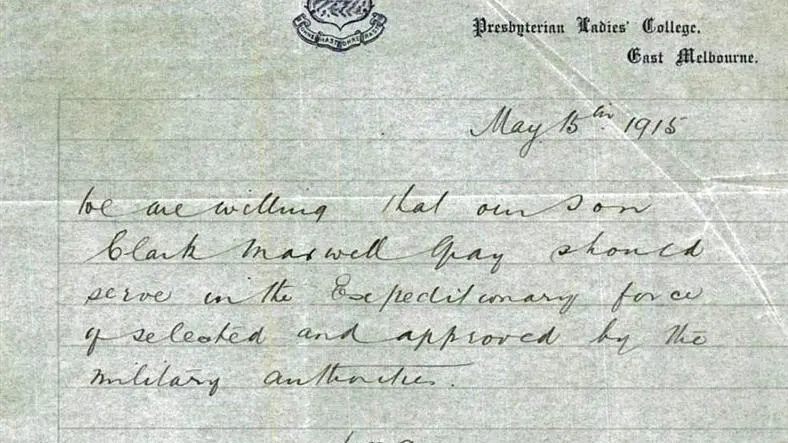 OHNE HAST OHNE RAST
Presbyterian Ladies' College,
East Melbourne.
May 15th 1915
We are willing that our Son
Clark Maxwell Gray should
serve in the Expeditionary force
if selected and approved by the
military authorities.